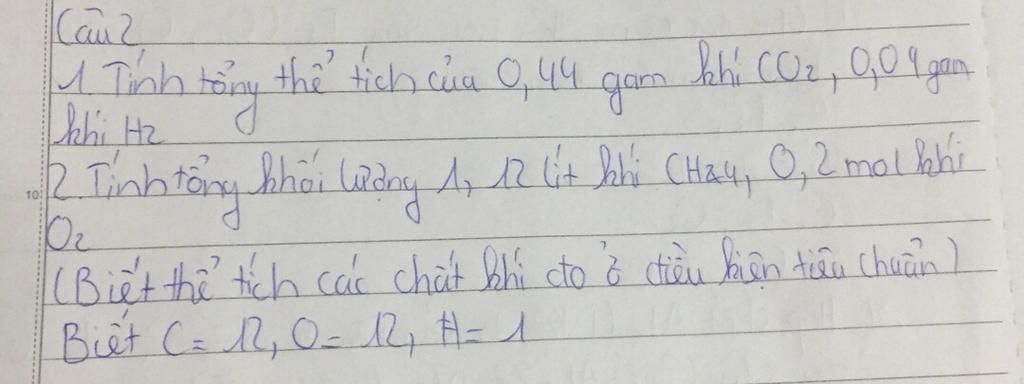 Câu 2
1 Tính tổng thể tích của 0,44 gam khí CO2, 0,04 gam
khí H2
2 Tính tổng khối lượng 1,12 lít khí CH4, 0,2 mol khí
10
O2
(Biết thể tích các chất khí đo ở điều kiện tiêu chuẩn)
Biết C = 12, O = 12, H = 1